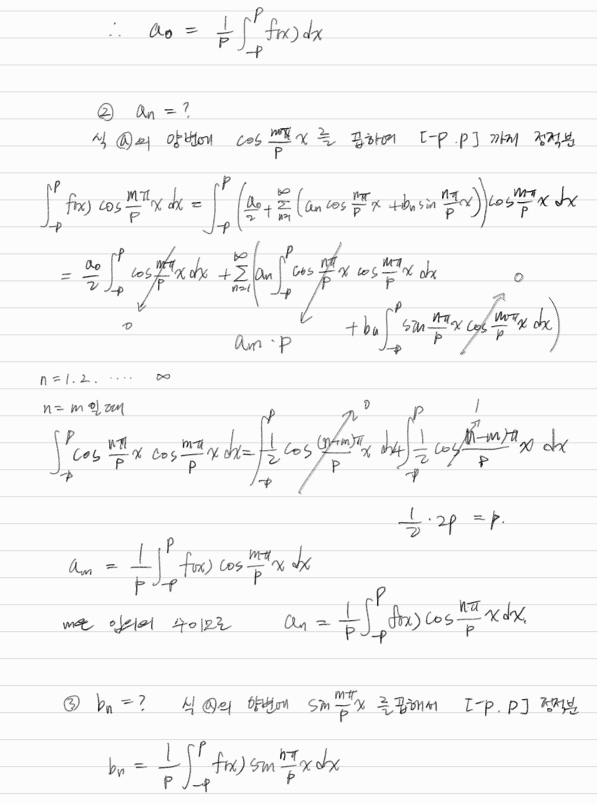 ∴ a₀ = 1/p ∫_{-p}^{p} f(x) dx
② aₙ = ?
식 ⓐ의 양변에 cos mπ/p x 를 곱하여 [-p.p] 까지 정적분
∫_{-p}^{p} f(x) cos mπ/p x dx = ∫_{-p}^{p} (a₀/2 + Σ_{n=1}^{∞} (aₙ cos nπ/p x + bₙ sin nπ/p x)) cos mπ/p x dx
= a₀/2 ∫_{-p}^{p} cos mπ/p x dx + Σ_{n=1}^{∞} (aₙ ∫_{-p}^{p} cos nπ/p x cos mπ/p x dx
0
0 aₘ · p + bₙ ∫_{-p}^{p} sin nπ/p x cos mπ/p x dx)
n = 1. 2. ····· ∞
n = m 일때
0 1
∫_{-p}^{p} cos nπ/p x cos mπ/p x dx = ∫_{-p}^{p} 1/2 cos (n+m)π/p x dx + ∫_{-p}^{p} 1/2 cos (n-m)π/p x dx
1/2 · 2p = p.
aₘ = 1/p ∫_{-p}^{p} f(x) cos mπ/p x dx
m은 임의의 수이므로 aₙ = 1/p ∫_{-p}^{p} f(x) cos nπ/p x dx.
③ bₙ = ? 식 ⓐ의 양변에 sin mπ/p x 를 곱해서 [-p.p] 정적분
bₙ = 1/p ∫_{-p}^{p} f(x) sin nπ/p x dx